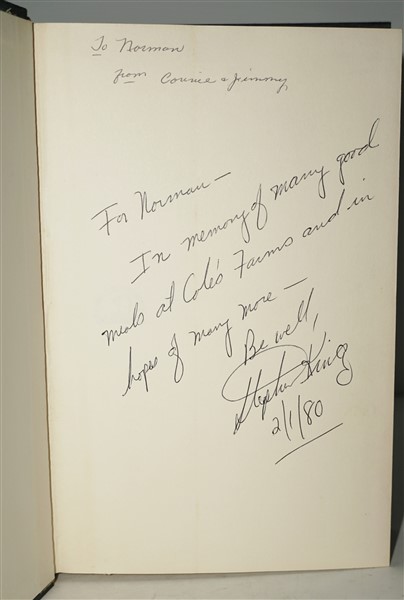 To Norman
from Connie & Jimmy
For Norman—
In memory of many good
meals at Cole's Farms and in
hopes of many more—
Be well,
Stephen King
2/1/80